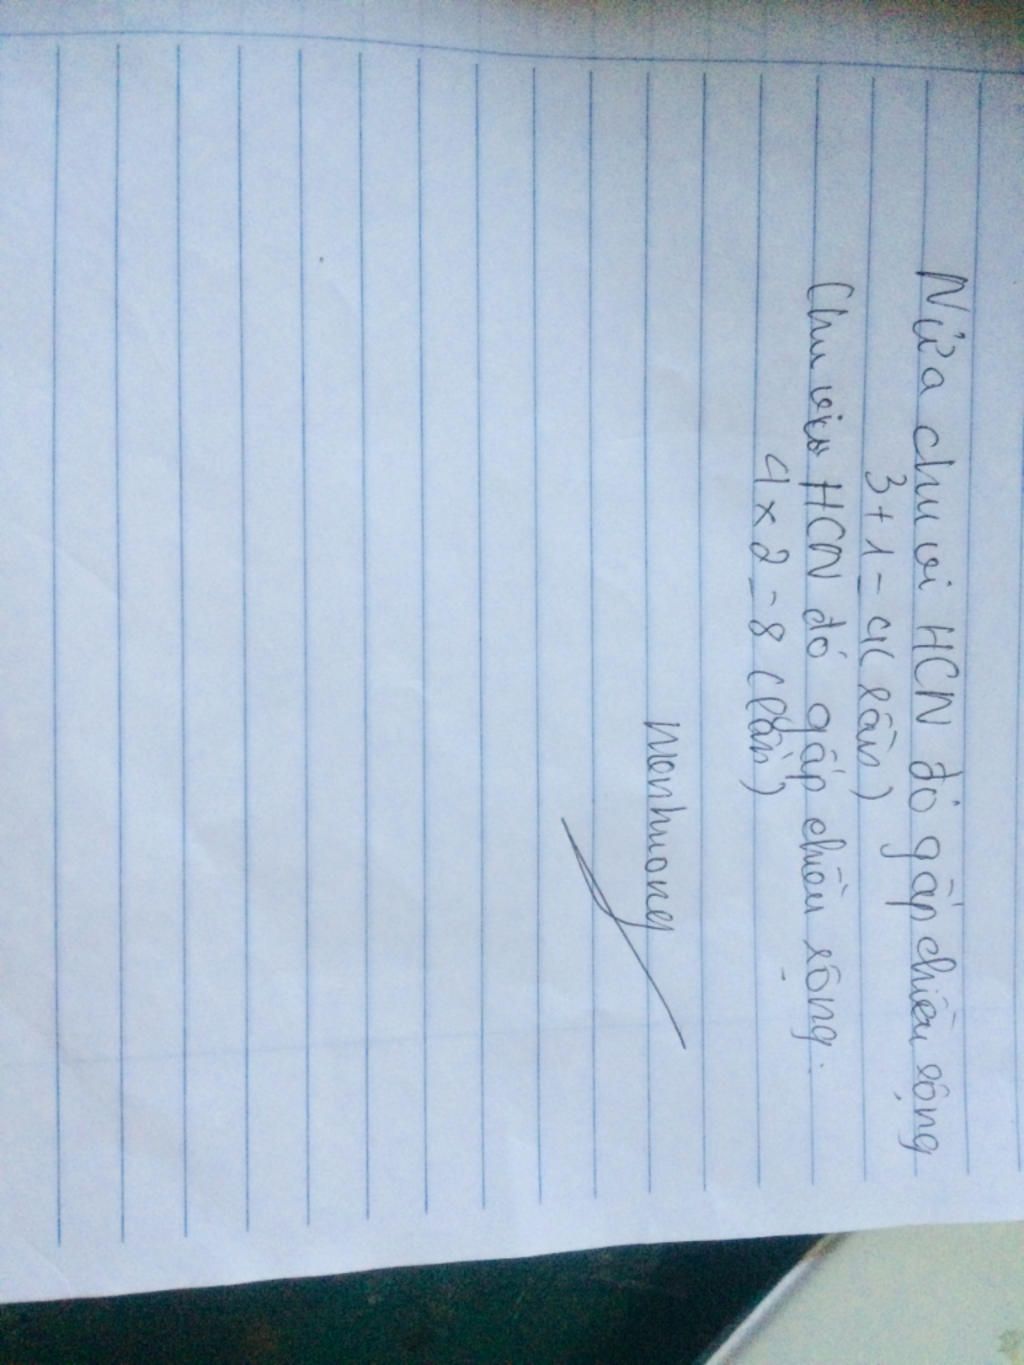 Nửa chu vi HCN đó gấp chiều rộng
3 + 1 = 4 (lần)
Chu vi HCN đó gấp chiều rộng.
4 x 2 = 8 (lần)
Monhuong